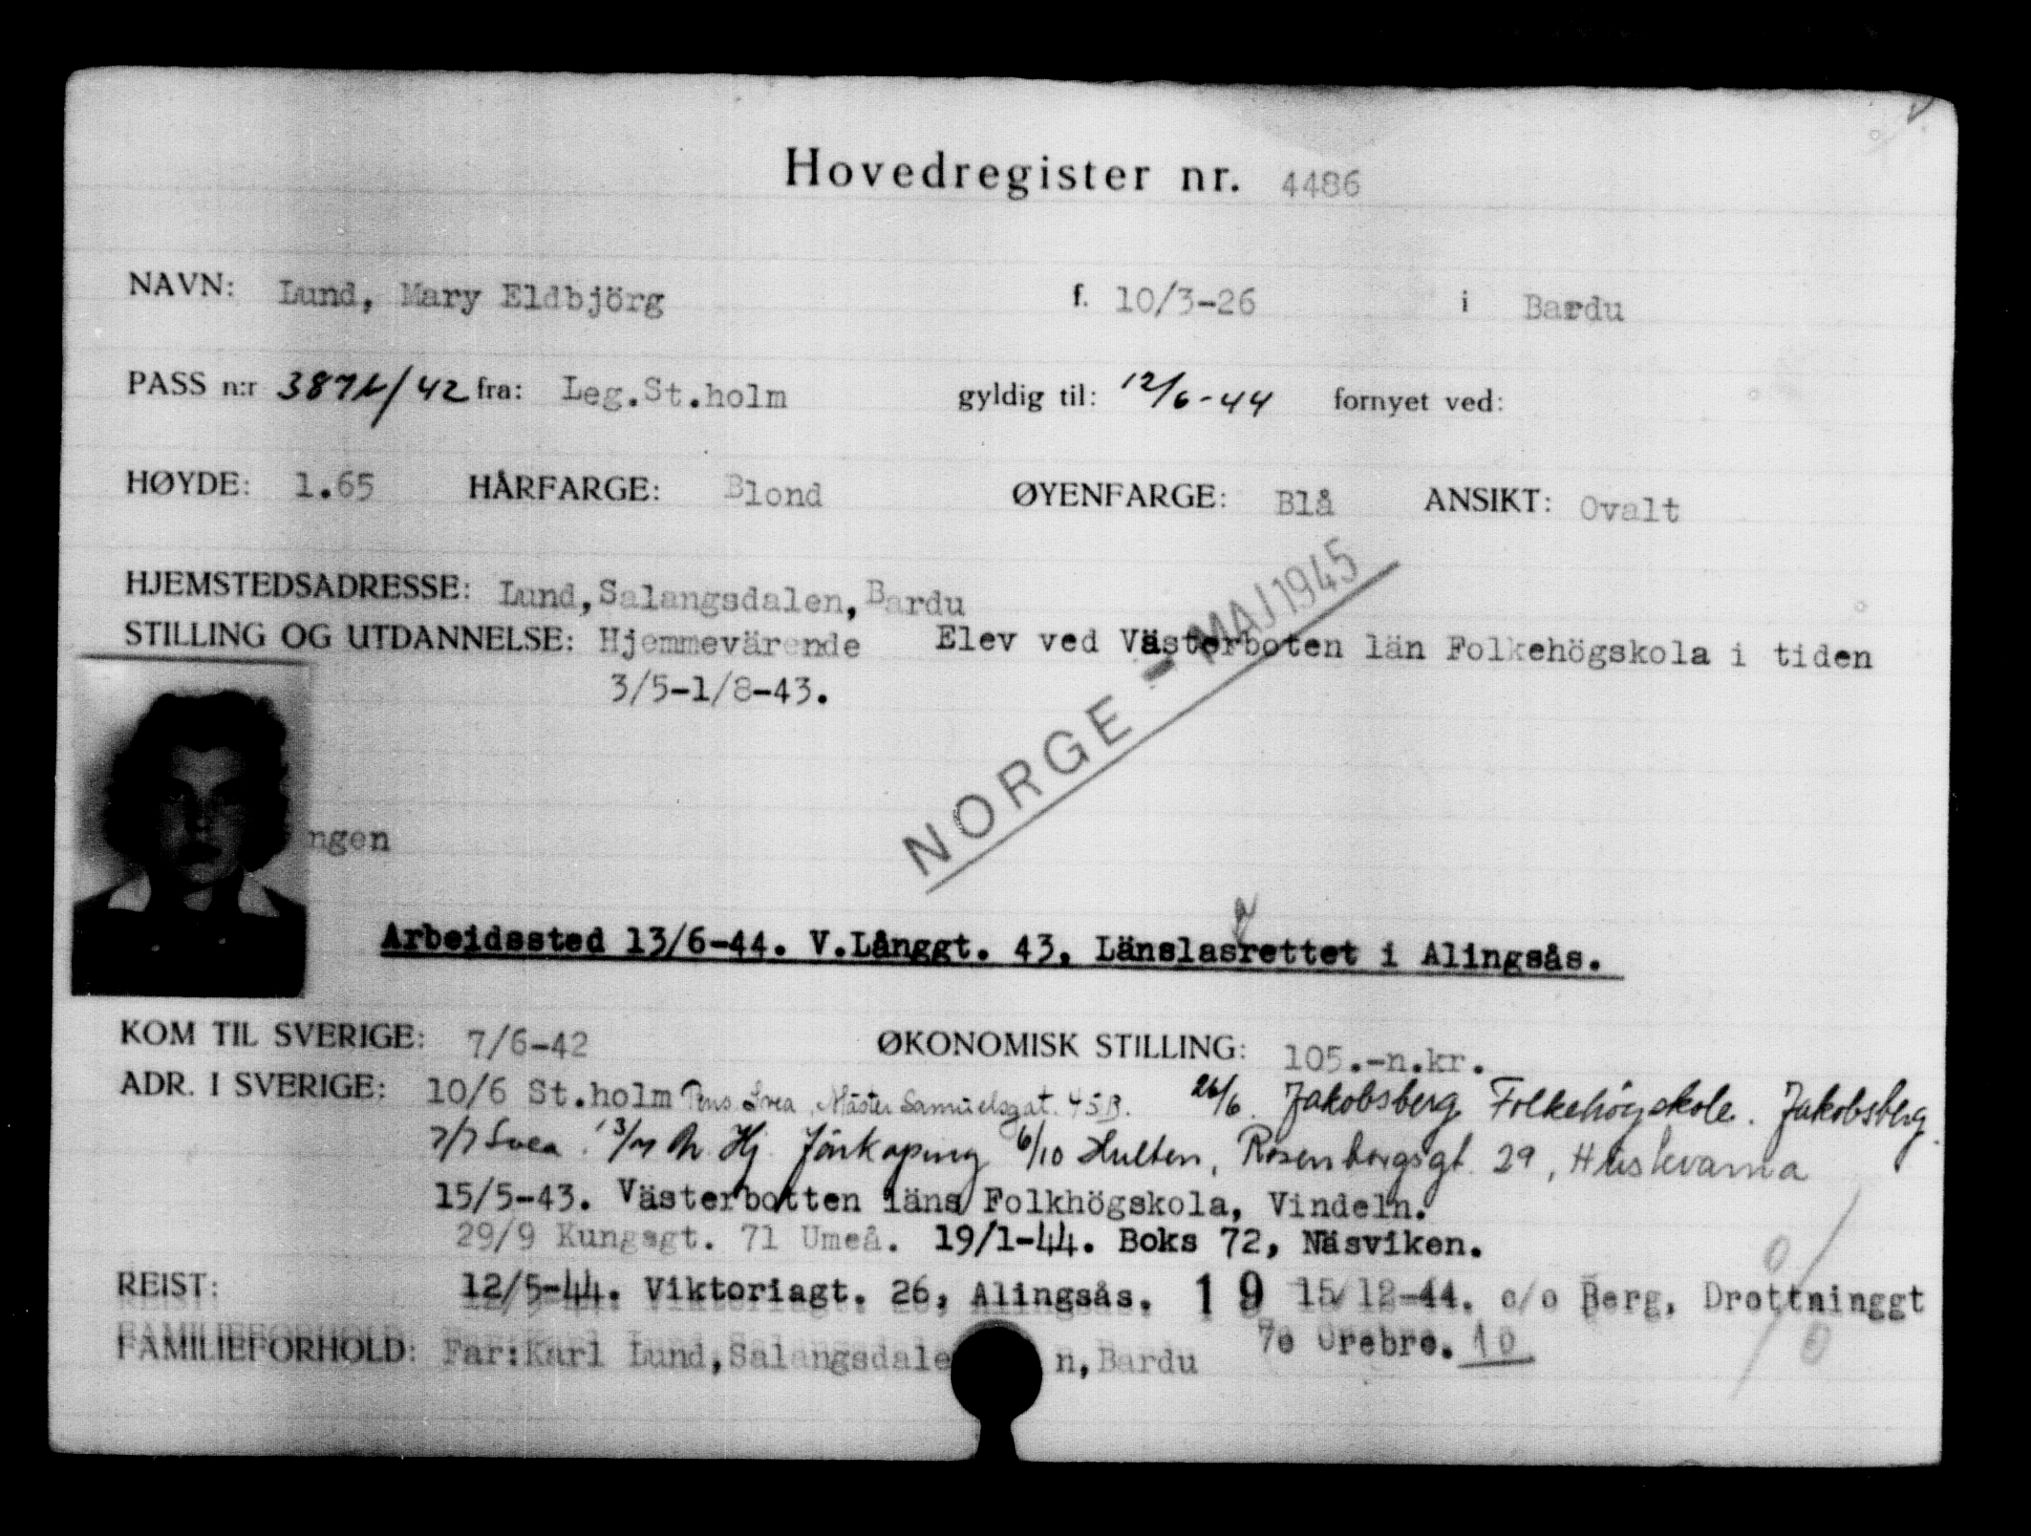 Hovedregister nr. 4486
NAVN: Lund, Mary Eldbjörg f. 10/3-26 i Bardu
PASS n:r /42 fra: Leg.St.holm gyldig til: 12/6-44 fornyet ved:
HØYDE: 1.65 HÅRFARGE: Blond ØYENFARGE: Blå ANSIKT: Ovalt
HJEMSTEDSADRESSE: Lund,Salangsdalen,Bardu
STILLING OG UTDANNELSE: Hjemmevärende Elev ved Västerboten län Folkehögskola i tiden
3/5-1/8-43.
NORGE - MAJ 1945
ngen
Arbeidssted 13/6-44. V.Långgt. 43, Länslasarettet i Alingsås.
KOM TIL SVERIGE: 7/6-42 ØKONOMISK STILLING: 105.-n.kr.
ADR. I SVERIGE: 10/6 St.holm Pens. Svea, Mäster Samuelsgat. 45B. 26/6. Jakobsberg Folkehögskole. Jakobsberg.
7/7 Svea. Jönkoping 6/10 Hulten, Rosenborgsgt. 29, Huskvarna
15/5-43. Västerbotten läns Folkhögskola, Vindeln.
29/9 Kungsgt. 71 Umeå. 19/1-44. Boks 72, Näsviken.
REIST: 12/5-44. Viktoriagt. 26, Alingsås. 19 15/12-44. c/o Berg, Drottninggt
7o Orebro. 10
FAMILIEFORHOLD: Far:Karl Lund,Salangsdale n,Bardu